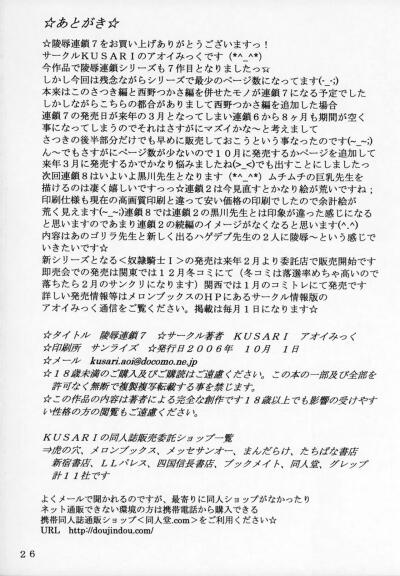 ☆あとがき☆
☆陵辱連鎖７をお買い上げありがとうございますっ！
サークルＫＵＳＡＲＩのアオイみっくです（*^_^*）
今作品で陵辱連鎖シリーズも７作目となりましたっ☆
しかし今回は残念ながらシリーズで最少のページ数になってます(-_-;)
本来はこのさつき編と西野つかさ編を併せたモノが連鎖７になる予定でした
しかしながらこちらの都合がありまして西野つかさ編を追加した場合
連鎖７の発売日が来年の３月となってしまい連鎖６から８ヶ月も期間が空く
事になってしまうのでそれはさすがにマズイかな～と考えまして
さつきの後半部分だけでも早めに販売しておこうという事なったのです(~_~;)
ん～でもさすがにページ数が少ないので１０月に発売するかページを追加して
来年３月に発売するかでかなり悩みましたね(>_<)でも出すことにしましたっ
次回連鎖８はいよいよ黒川先生となります（*^_^*）ムチムチの巨乳先生を
描けるのは凄く嬉しいですっっ☆連鎖２は今見直すとかなり絵が荒いですね；
印刷仕様も現在の高画質印刷と違って安い価格の印刷でしたので余計絵が
荒く見えます(~_~;)連鎖８では連鎖２の黒川先生とは印象が違った感じになる
と思いますのであまり連鎖２の続編のイメージがなくなると思います(^.^)
内容はあのゴリラ先生と新しく出るハゲデブ先生の２人に陵辱～という感じで
いきたいです☆
新シリーズとなる＜奴隷騎士Ⅰ＞の発売は来年２月より委託店で販売開始です
即売会での発売は関東では１２月冬コミにて（冬コミは落選率めちゃ高いので
落ちたら２月のサンクリになります）関西では１月のコミトレにて発売です
詳しい発売情報等はメロンブックスのＨＰにあるサークル情報版の
アオイみっく通信をご覧ください。掲載は毎月１日になります☆
☆タイトル　陵辱連鎖７　☆サークル著者　ＫＵＳＡＲＩ　アオイみっく
☆印刷所　サンライズ　☆発行日２００６年　１０月　１日
☆メール　kusari.aoi@docomo.ne.jp
☆１８歳未満のご購入及びご購読はご遠慮ください。この本の一部及び全部を
許可なく無断で複製複写転載する事を禁じます。
☆この作品の内容は著者による完全な創作です１８歳以上でも影響の受けやす
い性格の方の閲覧もご遠慮ください。
ＫＵＳＡＲＩの同人誌販売委託ショップ一覧
⇒虎の穴、メロンブックス、メッセサンオー、まんだらけ、たちばな書店
新宿書店、ＬＬパレス、四国信長書店、ブックメイト、同人堂、グレップ
計１１社です
よくメールで聞かれるのですが、最寄りに同人ショップがなかったり
ネット通販できない環境の方は携帯電話から購入できる
携帯同人誌通販ショップ＜同人堂.com＞をご利用ください☆
ＵＲＬ　http://doujindou.com/
２６